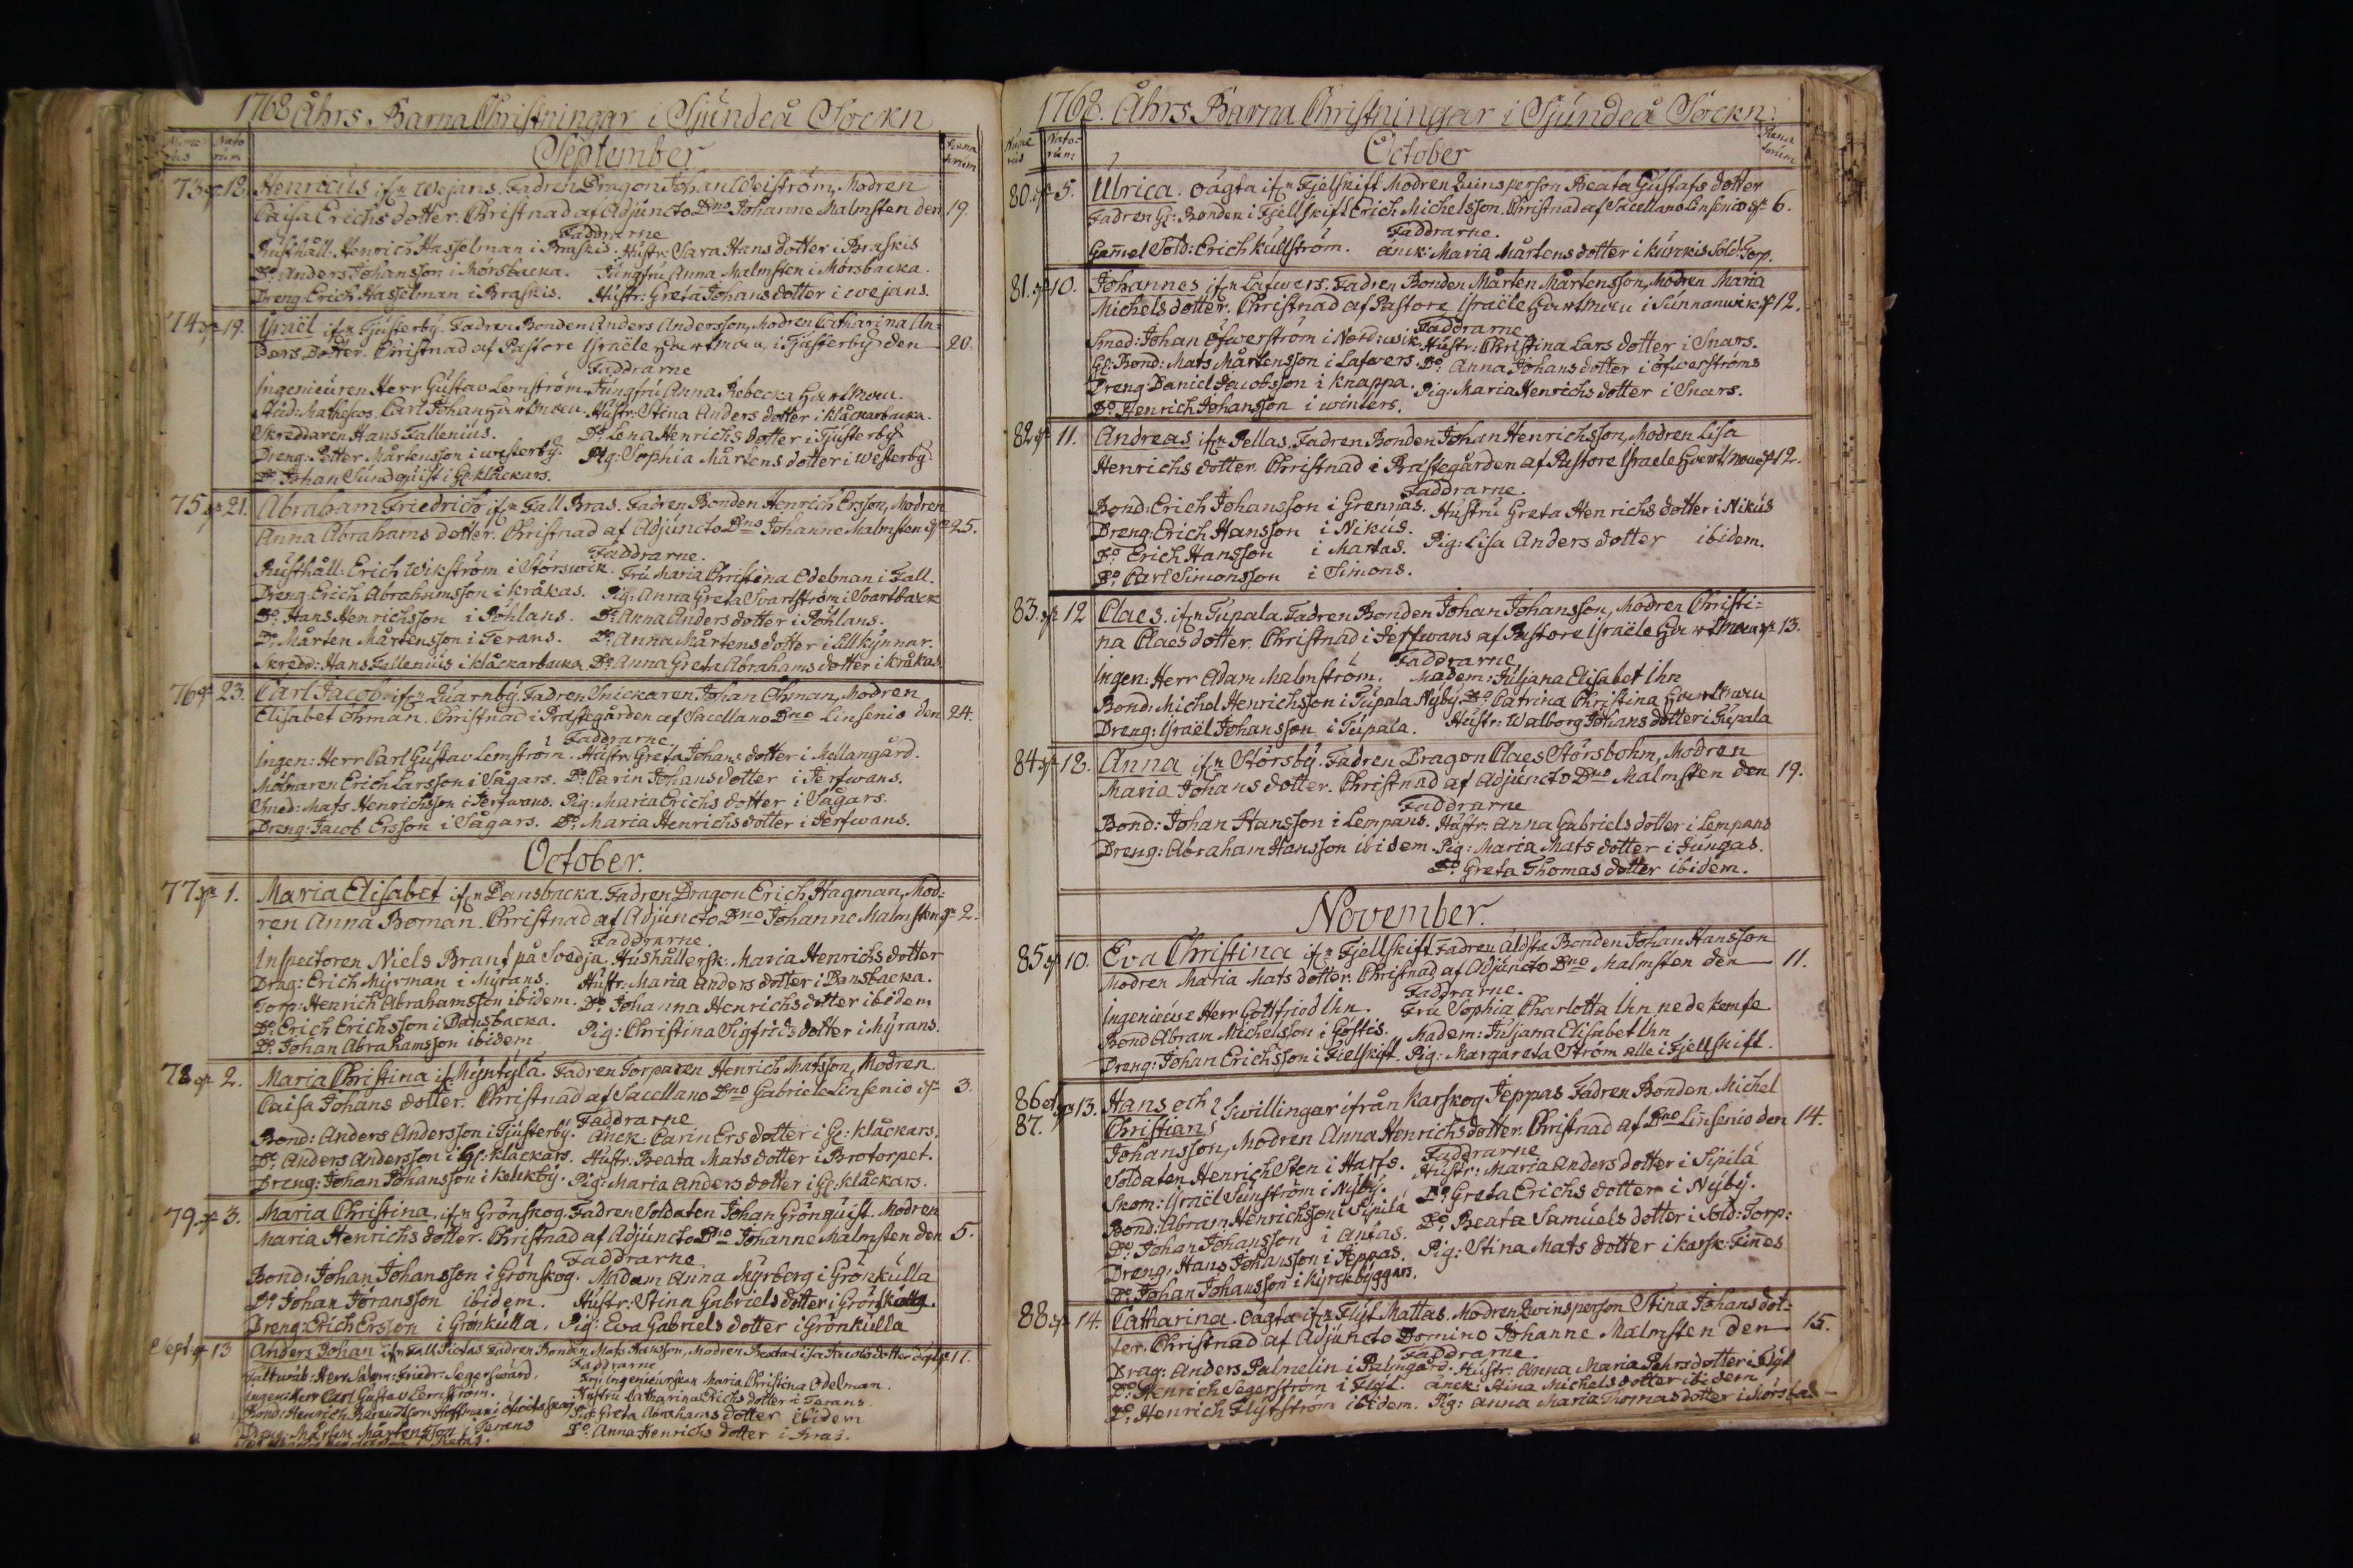 1768 Åhrs Barna Christningar i Sjúndeå Sockn
Nume rus Nato rúm Rena torúm
September
73 18. Henricús ifrn Wejans. Fadren Dragon Johan Weiström, Modren
Caisa Erichs dotter. Christnad af Adjúncto Dno Johanne Malmsten den 19.
Faddrarne
Rústhåll: Henrich Hasselman i Braskis. Hústr: Sara Hans dotter i Braskis
Do Anders Johansson i Mörsbacka. Júngfrú Anna Malmsten i Mörsbacka.
Dreng Erich Hasselman i Braskis. Hústr: Greta Johans dotter i wejans.
74 19. Israël ifrn Tjústerby. Fadren Bonden Anders Andersson, Modren Catharina An-
ders Dotter. Christnad af Pastore Israële Hartman i Tjústerby den 20.
Faddrarne
Ingenieúren Herr Gústav Lemström. Júngfrú Anna Rebecka Hartman.
Stúd: Matheseos. Carl Johan Hartman. Hústr: Stina Anders dotter i klåckarbacka.
Skreddaren Hans Fallenius. Do Lena Henrichs dotter i Tjústerby
Dreng: Petter Mårtensson i westerby. Pig: Sophia Mårtens dotter i westerby
Do Johan Súndqúist i Gl: klåckars.
75 21. Abraham Friedrich ifrn Fall Bras. Fadren Bonden Henrich Ersson, Modren
Anna Abrahams dotter. Christnad af Adjúncto Dno Johanne Malmsten 25.
Faddrarne.
Rústhåll: Erich Wikström i Störswik. Frú Maria Christina Edelman i Fall.
Dreng Erich Abrahamsson i kråkas. Pig: Anna Greta Svartström i Svartback
Do Hans Henrichsson i Pöhlans. Do Anna Anders dotter i Pöhlans.
Do Mårten Mårtensson i Terans. Do Anna Mårtens dotter i Allkynnar.
Skredd: Hans Fallenius i klåckarbacka. Do Anna Greta Abrahams dotter i kråkas
76 23. Carl Jacob ifrn Quarnby. Fadren Snickaren Johan Öhman, Modren
Elisabet öhman. Christnad i Prästegården af Sacellano Dno Linsenio den 24.
Faddrarne.
Ingen: Herr Carl Gústav Lemström. Hústr: Greta Johans dotter i Mellangård.
Mölnaren Erich Larsson i Sågars. Do Carin Johans dotter i Jerfwans.
Smed: Mats Henrichsson i Jerfwans. Pig: Maria Erichs dotter i Sågars.
Dreng: Jacob Ersson i Sågars. Do Maria Henrichs dotter i Jerfwans.
October.
77 1. Maria Elisabet ifrn Dansbacka. Fadren Dragon Erich Hagman, Mod-
ren Anna Boman. Christnad af Adjúncto Dno Johanne Malmsten 2.
Faddrarne.
Inspectoren Niels Brant på Svedja. Húshållersk: Maria Henrichs dotter
Drag: Erich Myrman i Myrans. Hústr: Maria Anders dotter i Dansbacka.
Torp: Henrich Abrahamsson ibidem. Do Johanna Henrichs dotter ibidem
Do Erich Erichsson i Dansbacka. Pig: Christina Sigfrids dotter i Myrans.
Do Johan Abrahamsson ibidem
78 2. Maria Christina if Myntylä. Fadren Torparen Henrich Matsson, Modren
Caisa Johans dotter. Christnad af Sacellano Dno Gabriele Linsenio 3.
Faddrarne
Bond: Anders Andersson i Tjústerby. Änck: Carin Ers dotter i Gl: klåckars.
Do Anders Andersson i Gl: klåckars. Hústr: Beata Mats dotter i Brotorpet.
Dreng: Johan Johansson i kelckby. Pig: Maria Anders dotter i Gl: klåckars.
79. 3. Maria Christina ifrn Grönskog. Fadren Soldaten Johan Grönqúist. Modren
Maria Henrichs dotter. Christnad af Adjúncto Dno Johanne Malmsten den 5.
Faddrarne
Bond: Johan Johansson i Grönskog. Madam Anna Myrberg i Grönkúlla
Do Johan Jöransson ibidem. Hústr: Stina Gabriels dotter i Grönkúlla.
Dreng: Erich Ersson i Grönkúlla. Pig: Eva Gabriels dotter i Grönkúlla
Sept 13 Anders Johan ifrn Fall Pietas. Fadren Bonden Mats Hansson, Modren Beata Lisa Jacobs dotter 17.
Faddrarne
Fältwäb: Herr Salom: Friedr: Segersward. Frú Ingenieurskan Maria Christina Odelman.
Ingen: Herr Carl Gustav Lemström. Hústrú Catharina Erichs dotter i Terans
Bond: Henrich Pig: Greta Abrahams dotter ibidem
Dreng: Mårten Mårtensson i Terans Do Anna Henrichs dotter i Bras.
1768. Åhrs Barna Christningar i Sjúndeå Sockn:
Núme rús Nato- rúm Rena torúm
October
80. 5. Ulrica. oägta ifrn Fjelskift Modren Quinsperson Beata Gústafs dotter
Fadren Gl: Bonden i Fjellskift Erich Michelsson. Christnad af Sacellano Linsenio 6.
Faddrarne.
Gamel Sold: Erich kúllström. änck: Maria Mårtens dotter i kúrkis Sold: Torp.
81. 10. Johannes ifrn Lafwers. Fadren Bonden Mårten Mårtensson, Modren Maria
Michels dotter. Christnad af Pastore Israële Hartman i Súnnanwik 12.
Faddrarne
Smed: Johan öfwerström i Nord:wik. Hústr: Christina Lars dotter i Snars.
Gl: Bond: Mats Mårtensson i Lafwers. Do Anna Johans dotter i öfwerströms
Dreng: Daniel Jacobsson i knappa. Pig: Maria Henrichs dotter i Snars.
Do Henrich Johansson i winters.
82 11. Andreas ifrn Pellas. Fadren Bonden Johan Henrichsson, Modren Lisa
Henrichs dotter. Christnad i Prästegården af Pastore Israele Hartman 12.
Faddrarne.
Bond: Erich Johansson i Grennas. Hústrú Greta Henrichs dotter i Nikús
Dreng: Erich Hansson i Nikús. Pig: Lisa Anders dotter ibidem.
Do Erich Hansson i Martas.
Do Carl Simonsson i Simons.
83. 12 Claes. ifrn Tupala. Fadren Bonden Johan Johansson, Modren Christi-
na Claes dotter. Christnad i Jerfwans af Pastore Israële Hartman 13.
Faddrarne.
Ingen: Herr Adam Malmström. Madem: Júljana Elisabet Ihn
Bond: Michel Henrichsson i Túpala Nyby. Do Catrina Christina Hartman
Dreng: Israël Johansson i Túpala. Hústr: Walborg Johans dotter i Túpala
84 18. Anna ifrn Störsby. Fadren Dragon Claes Störsbohm, Modren
Maria Johans dotter. Christnad af Adjúncto Dno Malmsten den 19.
Faddrarne
Bond: Johan Hansson i Lempans. Hústr: Anna Gabriels dotter i Lempans
Dreng: Abraham Hansson ibidem. Pig: Maria Mats dotter i Júngas.
Do Greta Thomas dotter ibidem.
November.
85 10. Eva Christina ifrn Fjellskift Fadren äldsta Bonden Johan Hansson
Modren Maria Mats dotter. Christnad af Adjúncto Dno Malmsten den 11.
Faddrarne.
Ingenieúr Herr Gottfriod Ihn. Frú Sophia Charlotta Ihn ne de kemfe
Bond Abram Michelsson i Göstis. Madem: Júljana Elisabet Ihn
Dreng: Johan Erichsson i Fielskift. Pig: Margareta Ström alle i Fjellskift.
86 et 87. 13. Hans och Christian Twillingar ifrån Karskog Jeppas Fadren Bonden Michel
Johansson, Modren Anna Henrichs dotter. Christnad af Dno Linsenio den 14.
Faddrarne
Soldaten Henrich Sten i Harfs. Hústr: Maria Anders dotter i Sipilä
Skom: Israël Súnström i Nyby. Do Greta Erichs dotter i Nyby.
Bond: Abram Henrichsson i Sipilä Do Beata Samúels dotter i Sold: Torp:
Do Johan Johansson i Antas. Pig: Stina Mats dotter i karsk: Fines
Dreng: Hans Johansson i Jeppas.
Do Johan Johansson i kyrckbyggars.
88 14. Catharina. oägta ifrn Flyt Mattas. Modren Qwinsperson Stina Johans dot-
ter. Christnad af Adjúncto Domino Johanne Malmsten den 15.
Faddrarne.
Drag: Anders Palmelin i Palmgård. Hústr: Anna Maria Pehrs dotter i Flyt
Do Henrich Segerström i Flyt. änck: Stina Michels dotter ibidem
Do Henrich Flytström ibidem. Pig: Anna Maria Thomas dotter i Mörsbac-